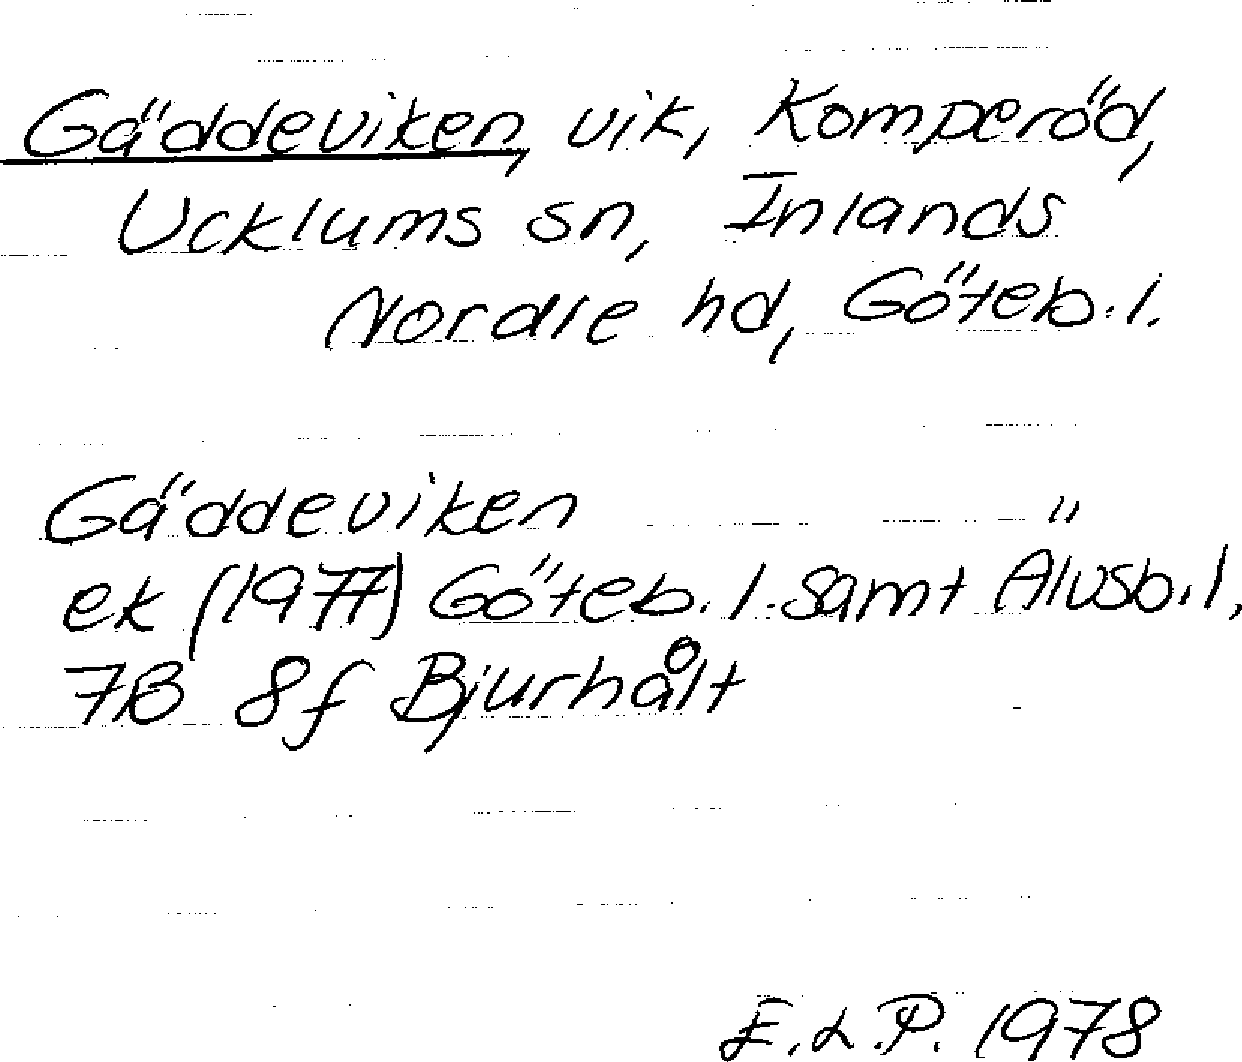 Gäddeviken, vik, Komperöd,
Ucklums sn, Inlands
Nordre hd, Göteb. l.
Gäddeviken
ek (1977) Göteb. l. samt Älvsb. l,
7B 8f Bjurhålt
E.L.P. 1978